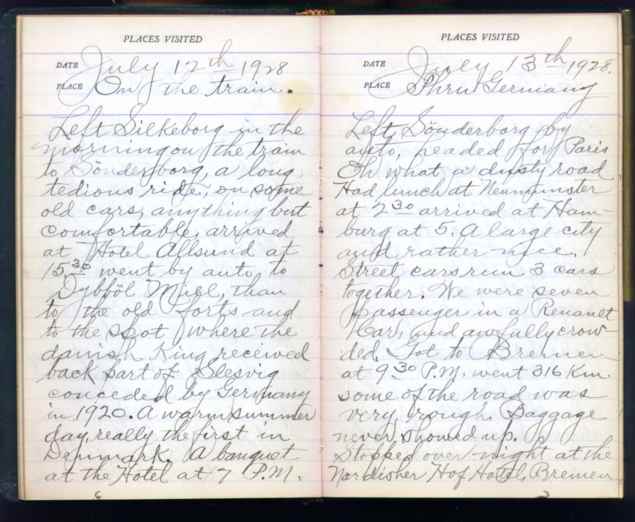 PLACES VISITED
DATE July 12th 1928
PLACE On the train.
Left Silkeborg in the
morning on the train
to Sönderborg, a long
tedious ride, on some
old cars, anything but
comfortable, arrived
at Hotel Allsund at
15 30 went by auto, to
Dybböl Mull, than
to the old forts and
to the spot where the
danish King received
back part of Slesvig
conceded by Germany
in 1920. A warm summer
day, really the first in
Denmark. A banquet
at the Hotel at 7 P.M.
6
PLACES VISITED
DATE July 13th 1928.
PLACE Thru Germany
Left, Sönderborg by
auto, headed for Paris
Oh what a dusty road
Had lunch at Neumünster
at 2 30 arrived at Ham-
burg at 5. A large city
and rather nice.
Street cars run 3 cars
together. We were seven
passenger in a Renault
Car, and awfully crow
ded. Got to Bremen
at 9 30 P.M. went 316 Km.
some of the road was
very rough. Baggage
never showed up.
Stopped over night at the
Nordisher Hof Hotel, Bremen